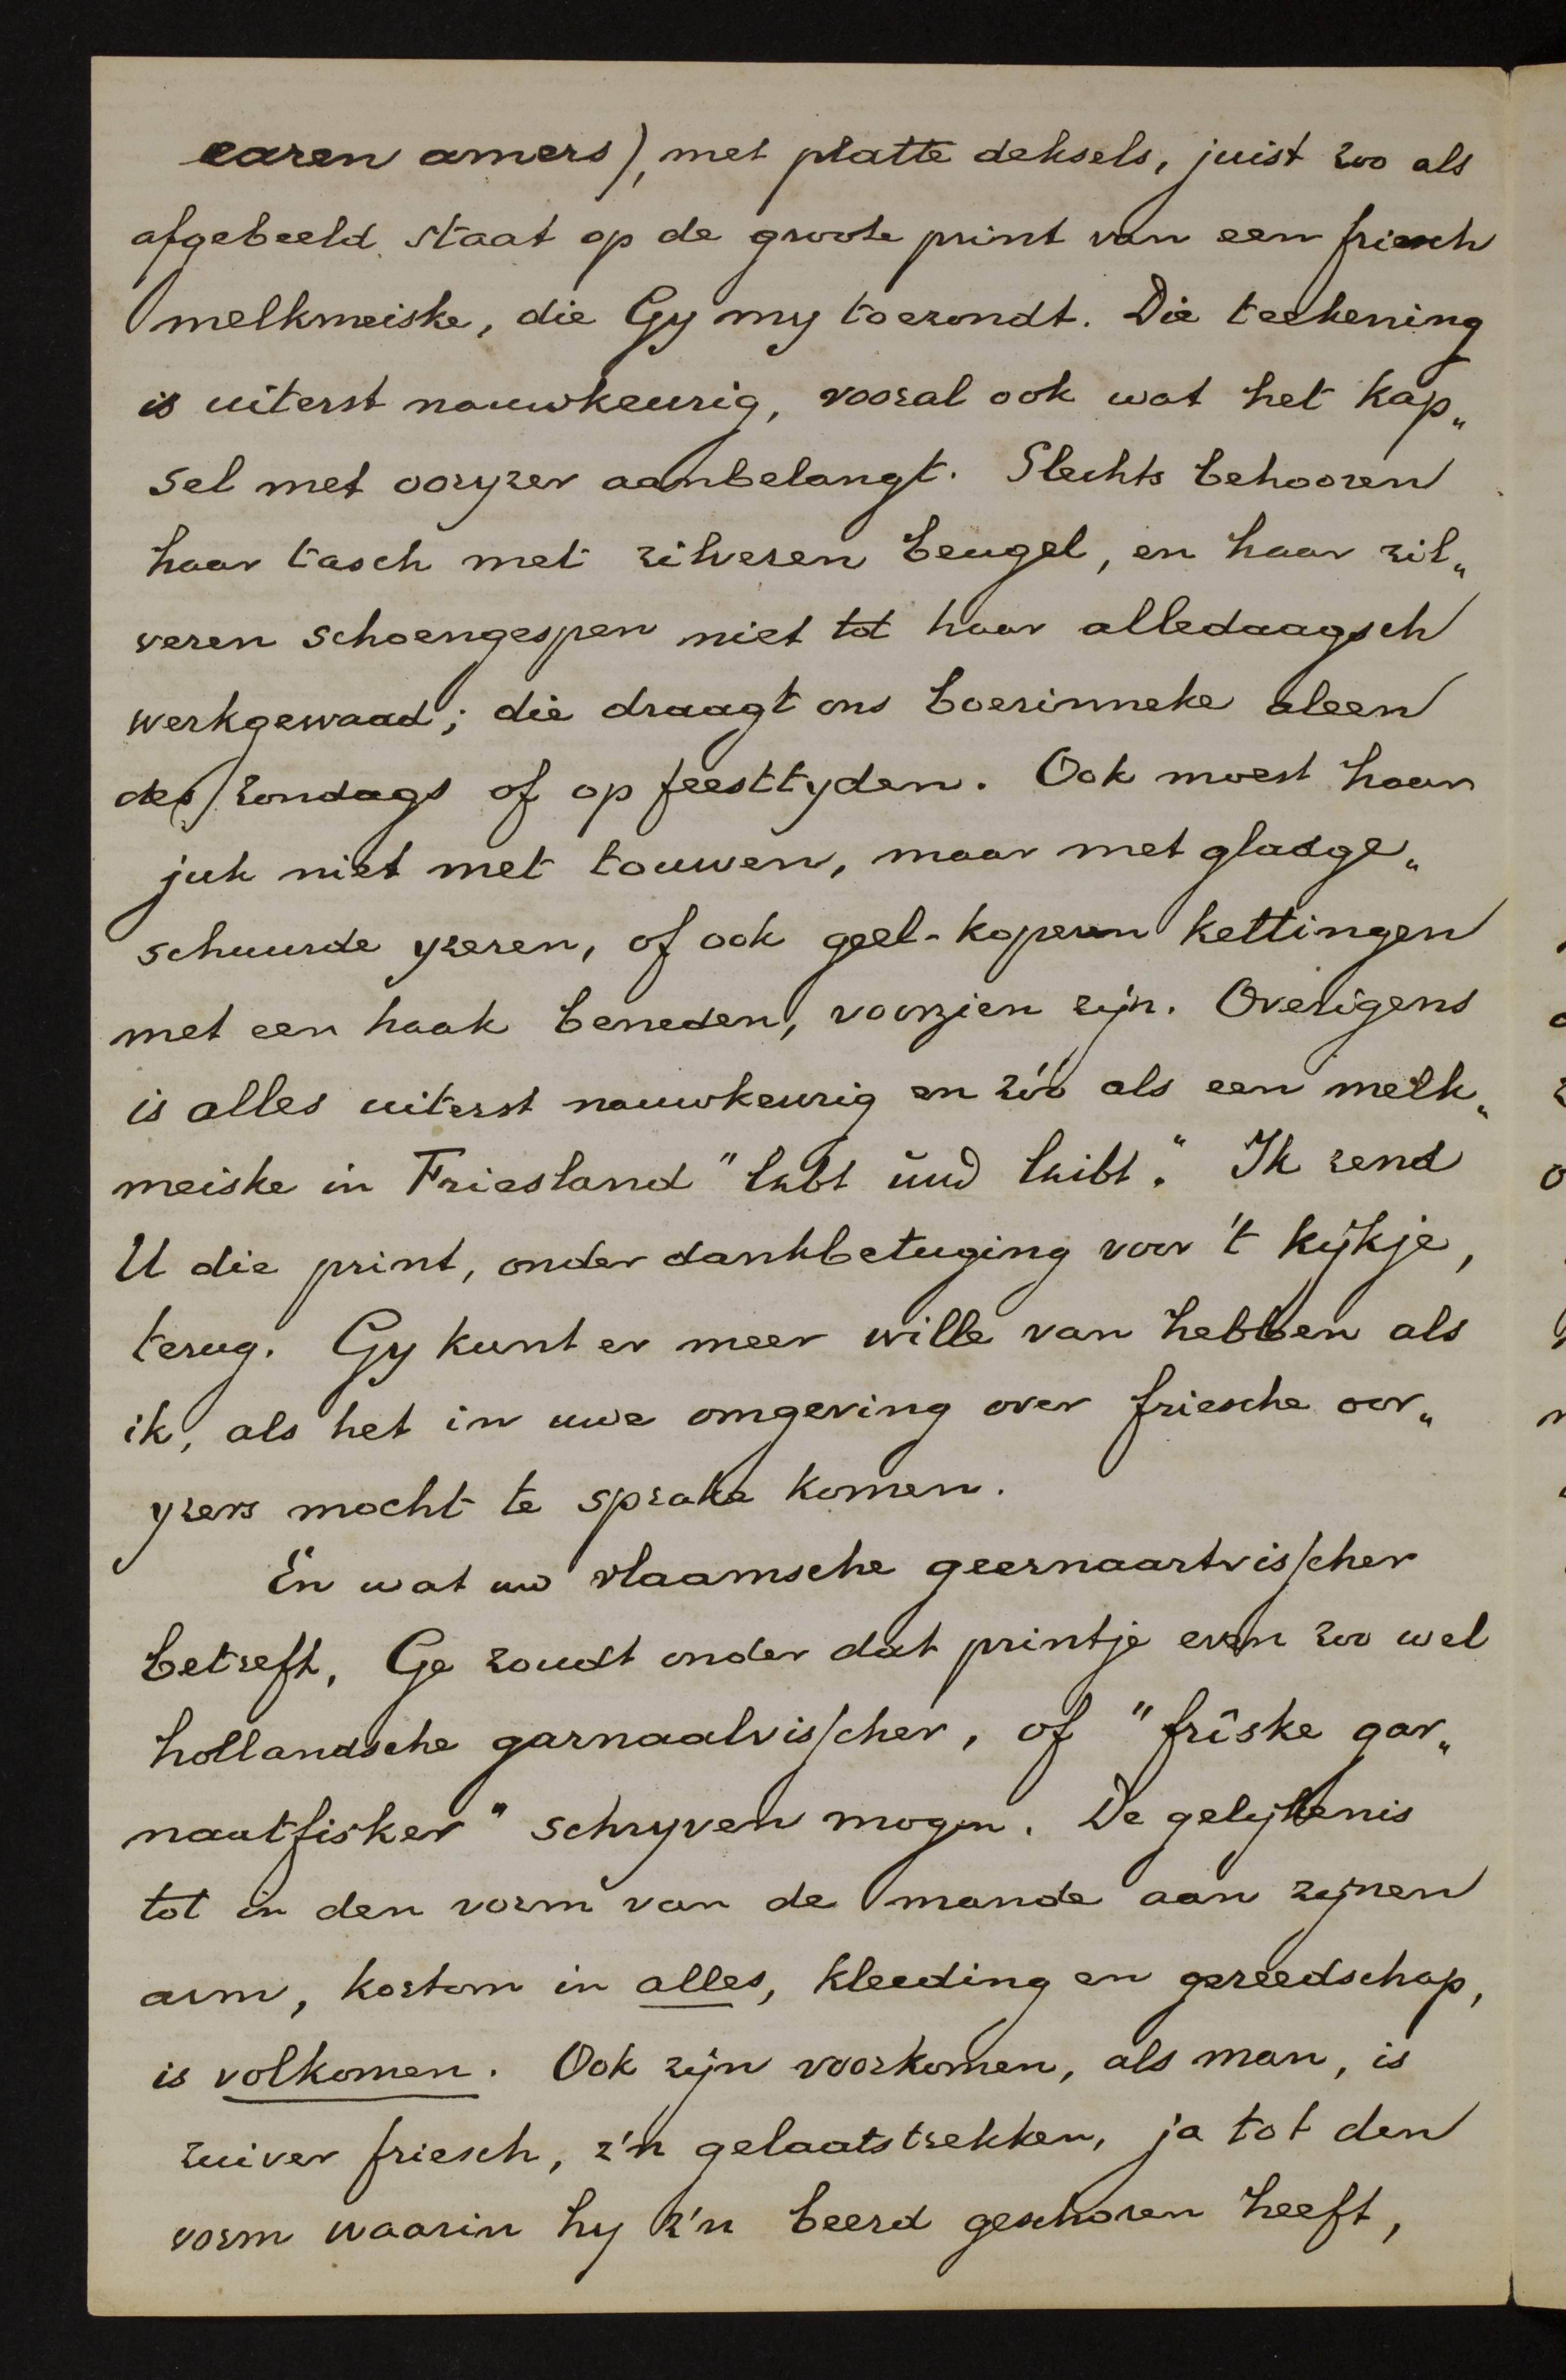 earen amers), met platte deksels, juist zoo als
afgebeeld staat op de groote print van een friesch
melkmeiske, die Gy my toezondt. Die teekening
is uiterst nauwkeurig, vooral ook wat het kap„
sel met ooryzer aanbelangt. Slechts behooren
haar tasch met zilveren beugel, en haar zil„
veren schoengespen niet tot haar alledaagsch
werkgewaad; die draagt ons boerinneke aleen
des zondags of op feesttyden. Ook moest haar
juk niet met touwen, maar met gladge„
schuurde yzeren, of ook geel-koperen kettingen
met een haak beneden, voorzien zijn. Overigens
is alles uiterst nauwkeurig en zóó als een melk„
meiske in Friesland "lebt und leibt." Ik zend
U die print, onder dankbetuging voor 't kijkje,
terug. Gy kunt er meer wille van hebben als
ik, als het in uwe omgeving over friesche oor„
yzers mocht te sprake komen.
En wat uw vlaamsche geernaartvisscher
betreft, Ge zoudt onder dat printje even zoo wel
hollandsche garnaalvisscher, of "frîske gar„
naatfisker" schryven mogen. De gelykenis
tot in den vorm van de mande aan zynen
arm, kortom in alles, kleeding en gereedschap,
is volkomen. Ook zijn voorkomen, als man, is
zuiver friesch, z'n gelaatstrekken, ja tot den
vorm waarin hy z'n beerd geschoren heeft,